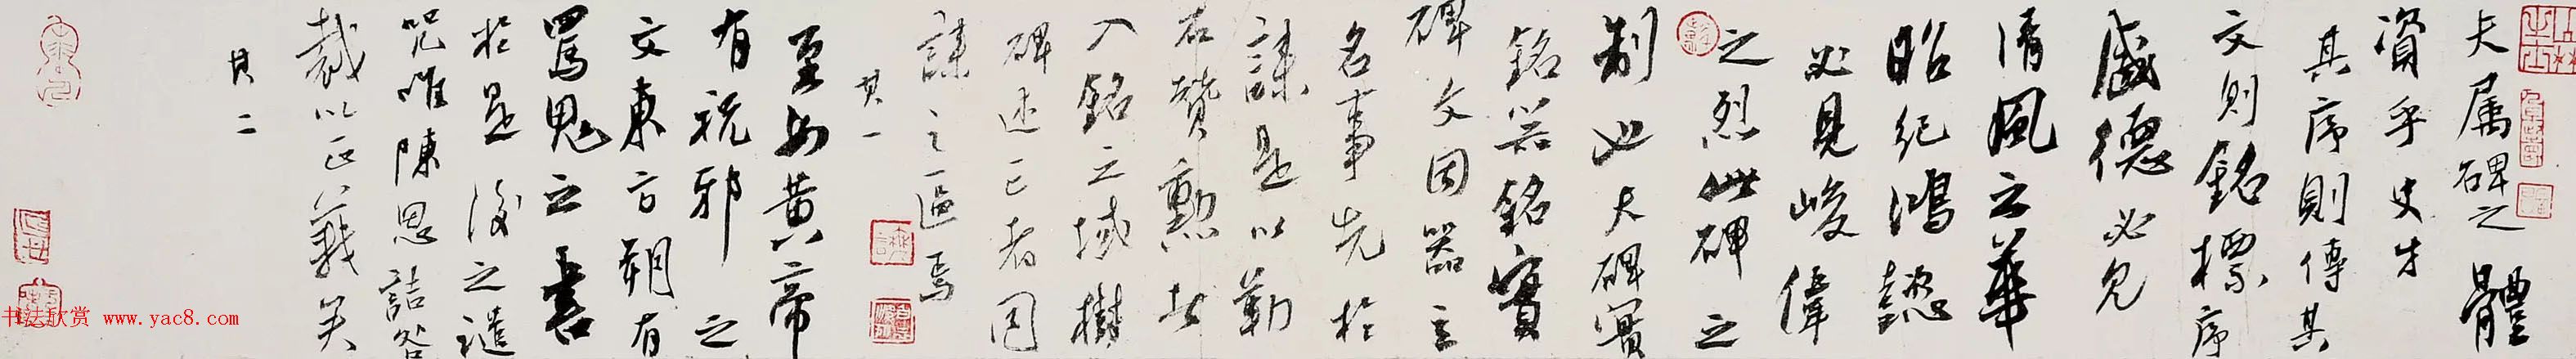 夫属碑之體
資乎史才
其序則傳其
文則銘標序
盛德必見
清風之華
昭紀鴻懿
必見峻偉
之烈此碑之
制也夫碑實
銘器銘實
碑文因器立
名事先於
誄是以勒
石贊勳者
入銘之域樹
碑述已者同
誄之區焉
其一
至如黄帝
有祝邪之
文東方朔有
罵鬼之書
於是後之譴
咒唯陳思詰咎
裁以正義矣
其二
书法欣赏 www.yac8.com